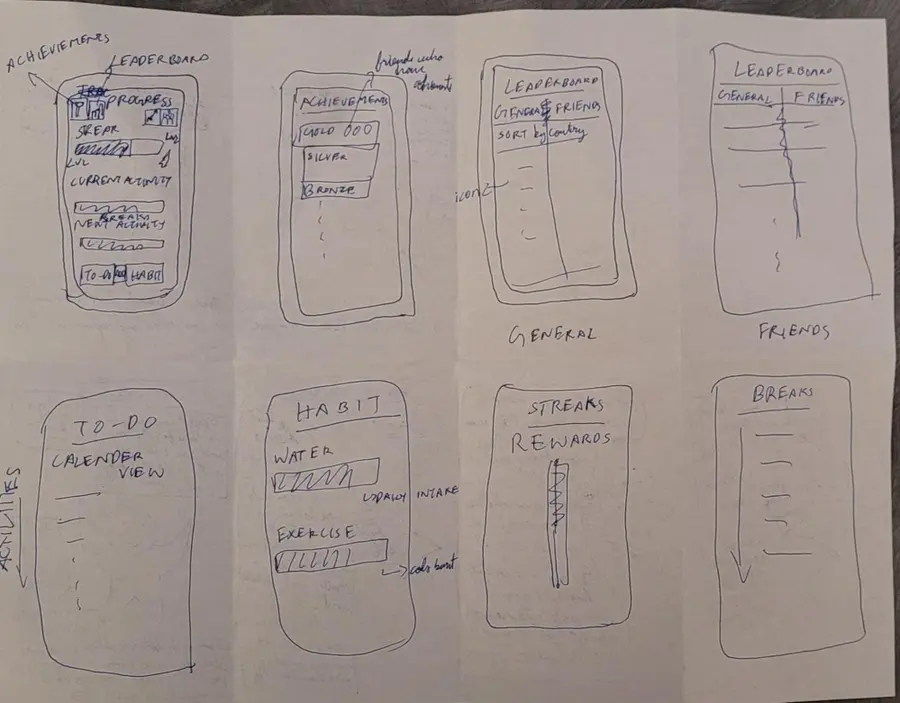 ACHIEVEMENTS
LEADERBOARD
PROGRESS
LVL
LVL
CURRENT ACTIVITY
BREAKS
NEXT ACTIVITY
TO-DO
HABIT
friends who
have
ACHIEVEMENTS
GOLD
SILVER
BRONZE
LEADERBOARD
GENERAL FRIENDS
SORT by Country
icons
GENERAL
LEADERBOARD
GENERAL FRIENDS
FRIENDS
ACTIVITIES
TO-DO
CALENDER
VIEW
HABIT
WATER
DAILY INTAKE
EXERCISE
STREAKS
REWARDS
BREAKS